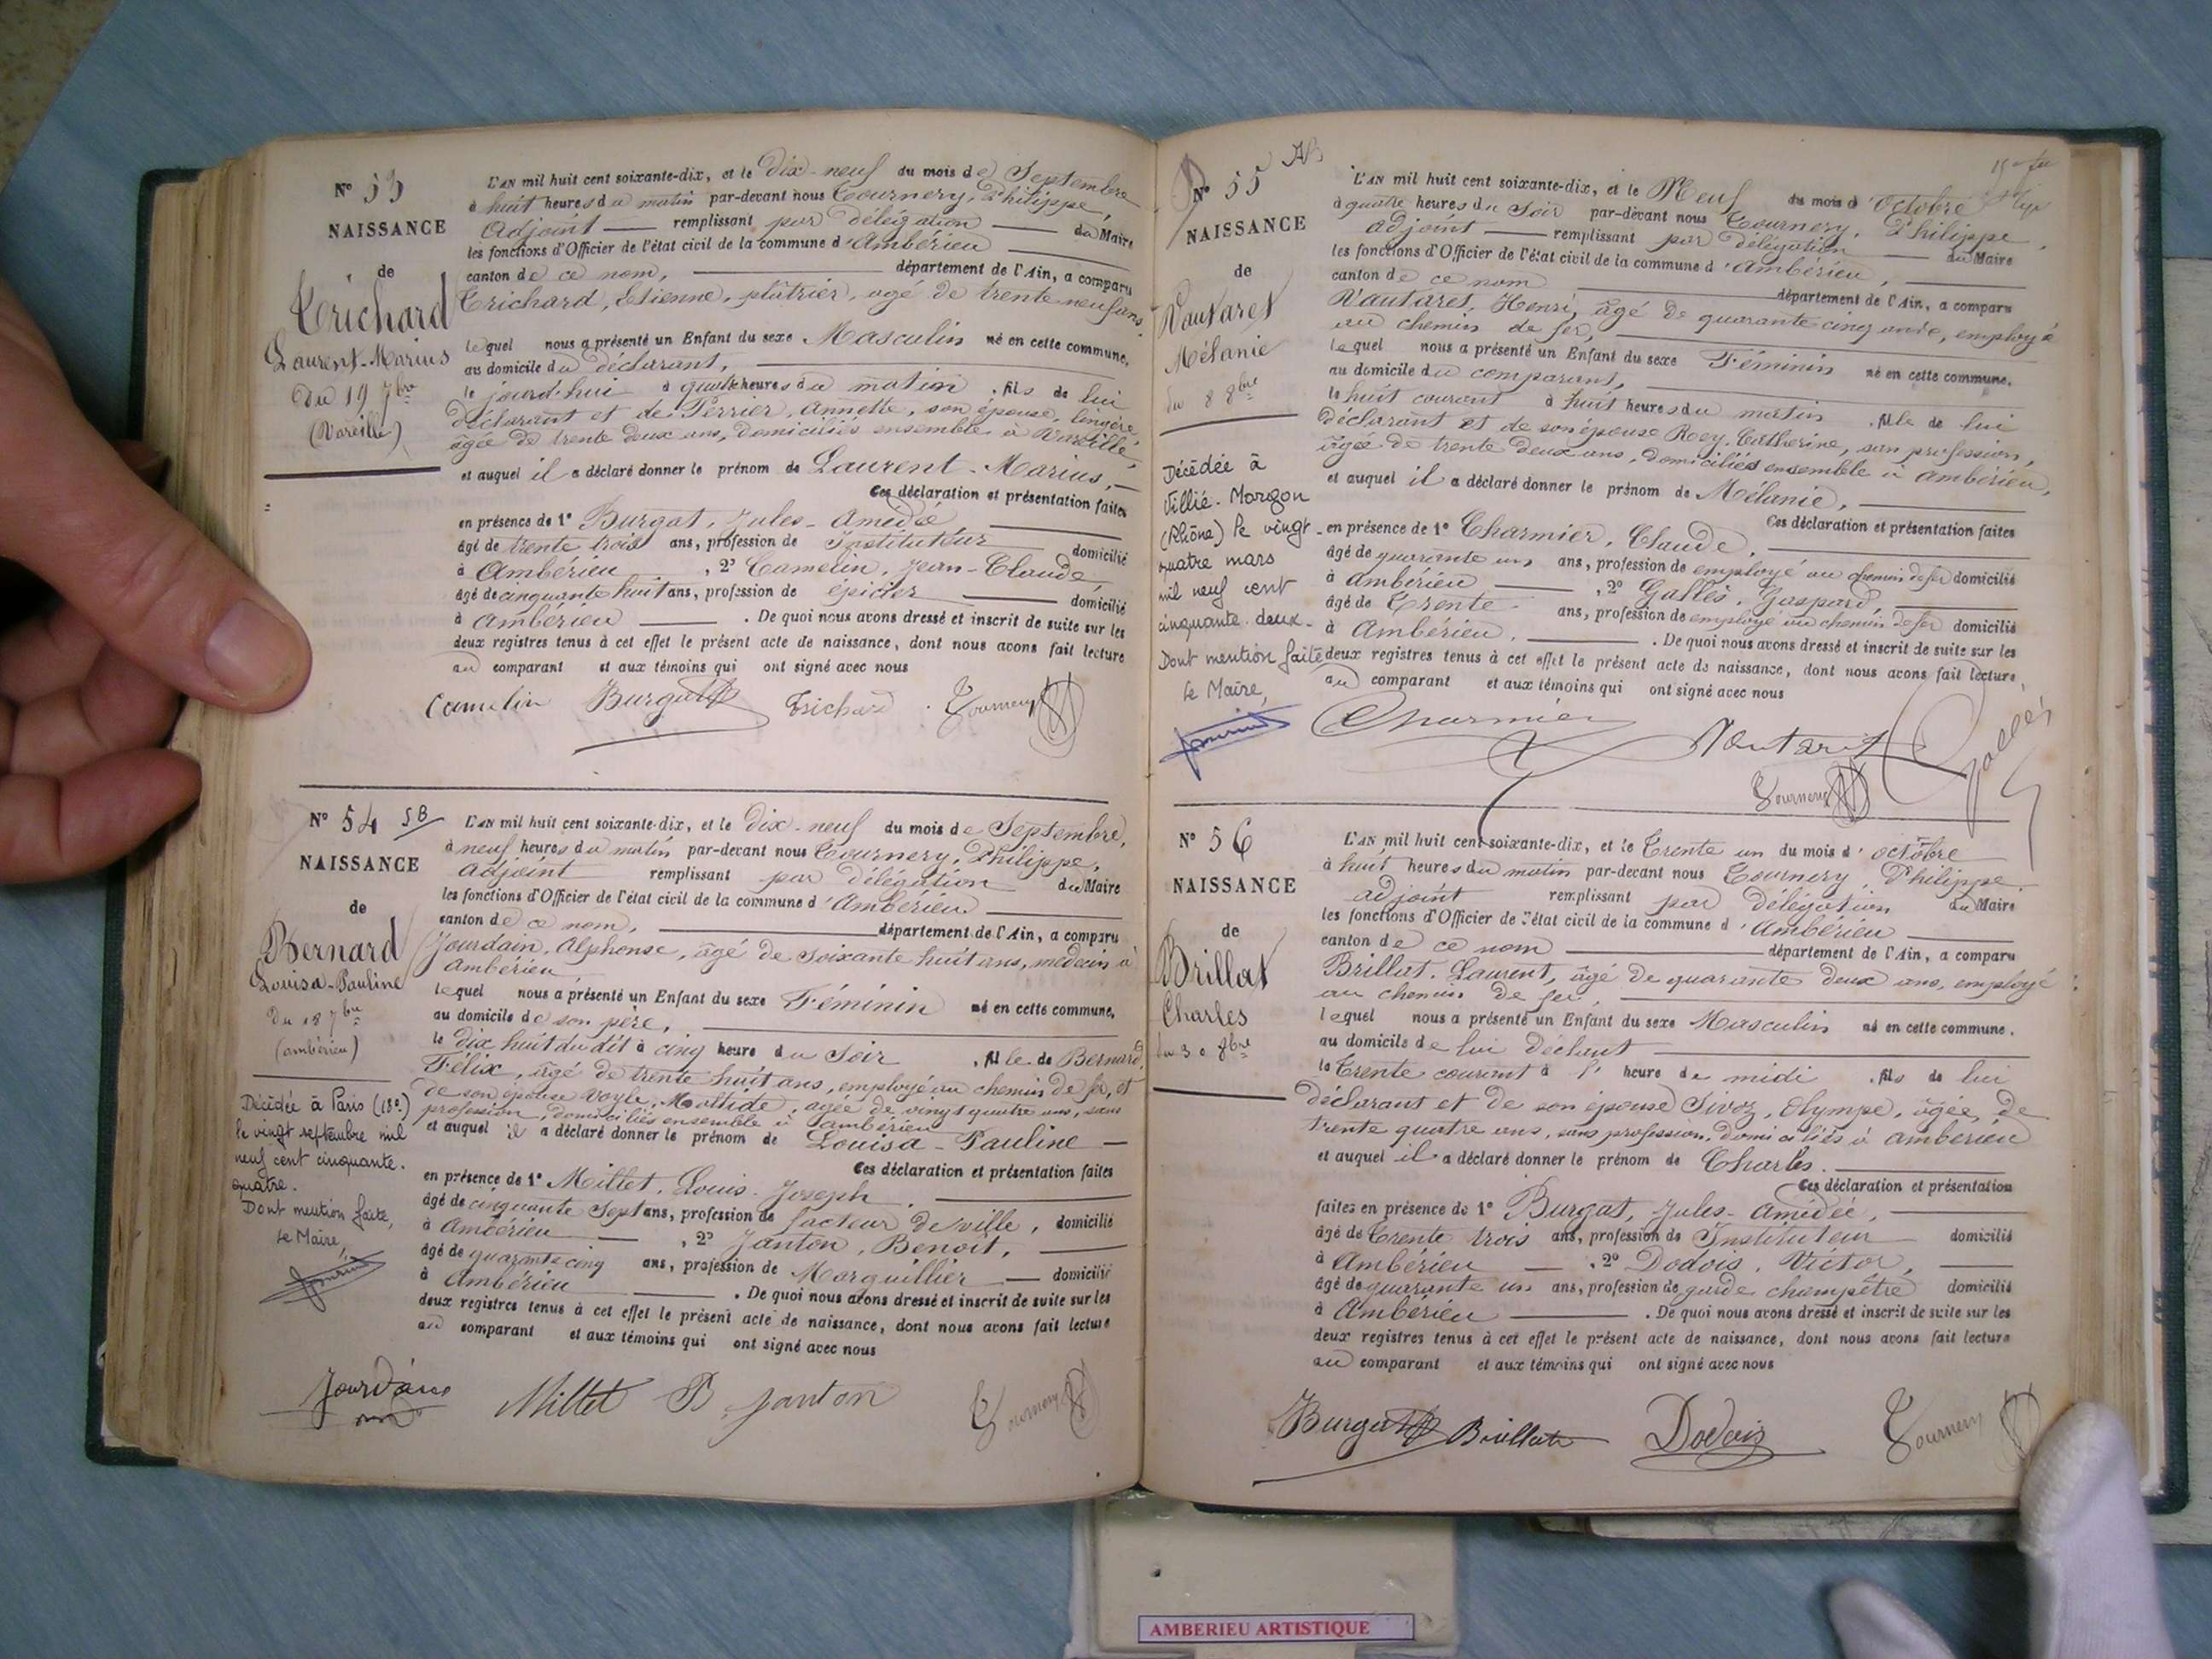 N° 53
NAISSANCE
de
Trichard
Laurent-Marius
Du 19 7bre
(Vareille)
L'AN mil huit cent soixante-dix, et le Dix-neuf du mois de Septembre
à huit heures du matin par-devant nous Tournery, Philippe,
Adjoint remplissant par délégation du Maire
les fonctions d'Officier de l'état civil de la commune d'Ambérieu
canton de ce nom, département de l'Ain, a comparu
Trichard, Etienne, plâtrier, âgé de trente neuf ans,
lequel nous a présenté un Enfant du sexe Masculin né en cette commune,
au domicile du déclarant,
le jourd'hui à quatre heures du matin, fils de lui
déclarant et de Perrier, Annette, son épouse, lingère,
âgée de trente deux ans, domiciliés ensemble à Vareille,
et auquel il a déclaré donner le prénom de Laurent-Marius,
Ces déclaration et présentation faites
en présence de 1° Burgat, Jules-Amédé
âgé de trente trois ans, profession de Instituteur domicilié
à Ambérieu, 2° Camelin, Jean-Claude,
âgé de cinquante huit ans, profession de épicier domicilié
à Ambérieu. De quoi nous avons dressé et inscrit de suite sur les
deux registres tenus à cet effet le présent acte de naissance, dont nous avons fait lecture
au comparant et aux témoins qui ont signé avec nous
Camelin Burgat Trichard Tournery
N° 54 SB
NAISSANCE
de
Bernard
Louisa-Pauline
Du 18 7bre
(ambérieu)
Décédée à Paris (18e.)
le vingt septembre mil
neuf cent cinquante.
quatre.
Dont mention faite,
Le Maire,
L'AN mil huit cent soixante-dix, et le dix-neuf du mois de Septembre,
à neuf heures du matin par-devant nous Tournery, Philippe,
Adjoint remplissant par délégation du Maire
les fonctions d'Officier de l'état civil de la commune d'Ambérieu
canton de ce nom, département de l'Ain, a comparu
Jourdain, Alphonse, âgé de soixante huit ans, médecin à
Ambérieu
lequel nous a présenté un Enfant du sexe Féminin né en cette commune,
au domicile de son père,
le dix huit du dit à cinq heure du soir, fille de Bernard,
Félix, âgé de trente huit ans, employé au chemin de fer, et
de son épouse Voyle, Mathide, âgée de vingt quatre ans, sans
profession, domiciliés ensemble à ambérieu
et auquel il a déclaré donner le prénom de Louisa-Pauline
Ces déclaration et présentation faites
en présence de 1° Millet, Louis-Joseph,
âgé de cinquante sept ans, profession de facteur de ville, domicilié
à Ambérieu, 2° Janton, Benoit,
âgé de quarante cinq ans, profession de Marguillier domicilié
à Ambérieu. De quoi nous avons dressé et inscrit de suite sur les
deux registres tenus à cet effet le présent acte de naissance, dont nous avons fait lecture
au comparant et aux témoins qui ont signé avec nous
Jourdain Millet B Janton Tournery
N° 55 AB
NAISSANCE
de
Vautaret
Mélanie
du 8 8bre
Décédée à
Villié-Morgon
(Rhône) le vingt-
quatre mars
mil neuf cent
cinquante-deux.
Dont mention faite
Le Maire,
L'AN mil huit cent soixante-dix, et le Neuf du mois d'Octobre
à quatre heures du soir par-devant nous Tournery, Philippe,
adjoint remplissant par délégation du Maire
les fonctions d'Officier de l'état civil de la commune d'Ambérieu,
canton de ce nom département de l'Ain, a comparu
Vautaret, Henri, âgé de quarante cinq ans, employé
au chemin de fer,
lequel nous a présenté un Enfant du sexe Féminin né en cette commune,
au domicile du comparant,
le huit courant à huit heures du matin, fille de lui
déclarant et de son épouse Roey, Catherine, sans profession,
âgée de trente deux ans, domiciliés ensemble à ambérieu,
et auquel il a déclaré donner le prénom de Mélanie,
Ces déclaration et présentation faites
en présence de 1° Charmier, Claude,
âgé de quarante un ans, profession de employé au chemin de fer domicilié
à ambérieu, 2° Gallès, Gaspard,
âgé de Trente ans, profession de employé au chemin de fer domicilié
à Ambérieu. De quoi nous avons dressé et inscrit de suite sur les
deux registres tenus à cet effet le présent acte de naissance, dont nous avons fait lecture,
au comparant et aux témoins qui ont signé avec nous
Charmier Vautaret Gallès
Tournery
N° 56
NAISSANCE
de
Brillat
Charles
du 30 8bre
L'AN mil huit cent soixante-dix, et le Trente un du mois d'octobre
à huit heures du matin par-devant nous Tournery Philippe
adjoint remplissant par délégation du Maire
les fonctions d'Officier de l'état civil de la commune d'Ambérieu
canton de ce nom département de l'Ain, a comparu
Brillat, Laurent, âgé de quarante deux ans, employé
au chemin de fer,
lequel nous a présenté un Enfant du sexe Masculin né en cette commune,
au domicile de lui déclant
le Trente courant à l'heure de midi, fils de lui
déclarant et de son épouse Sivoz, Olympe, âgée de
trente quatre ans, sans profession, domiciliés à ambérieu
et auquel il a déclaré donner le prénom de Charles.
Ces déclaration et présentation
faites en présence de 1° Burgat, Jules-Amédée,
âgé de Trente trois ans, profession de Instituteur domicilié
à Ambérieu, 2° Dodois, Victor,
âgé de quarante un ans, profession de garde champêtre domicilié
à Ambérieu. De quoi nous avons dressé et inscrit de suite sur les
deux registres tenus à cet effet le présent acte de naissance, dont nous avons fait lecture
au comparant et aux témoins qui ont signé avec nous
Burgat Brillat Dodois Tournery
AMBERIEU ARTISTIQUE